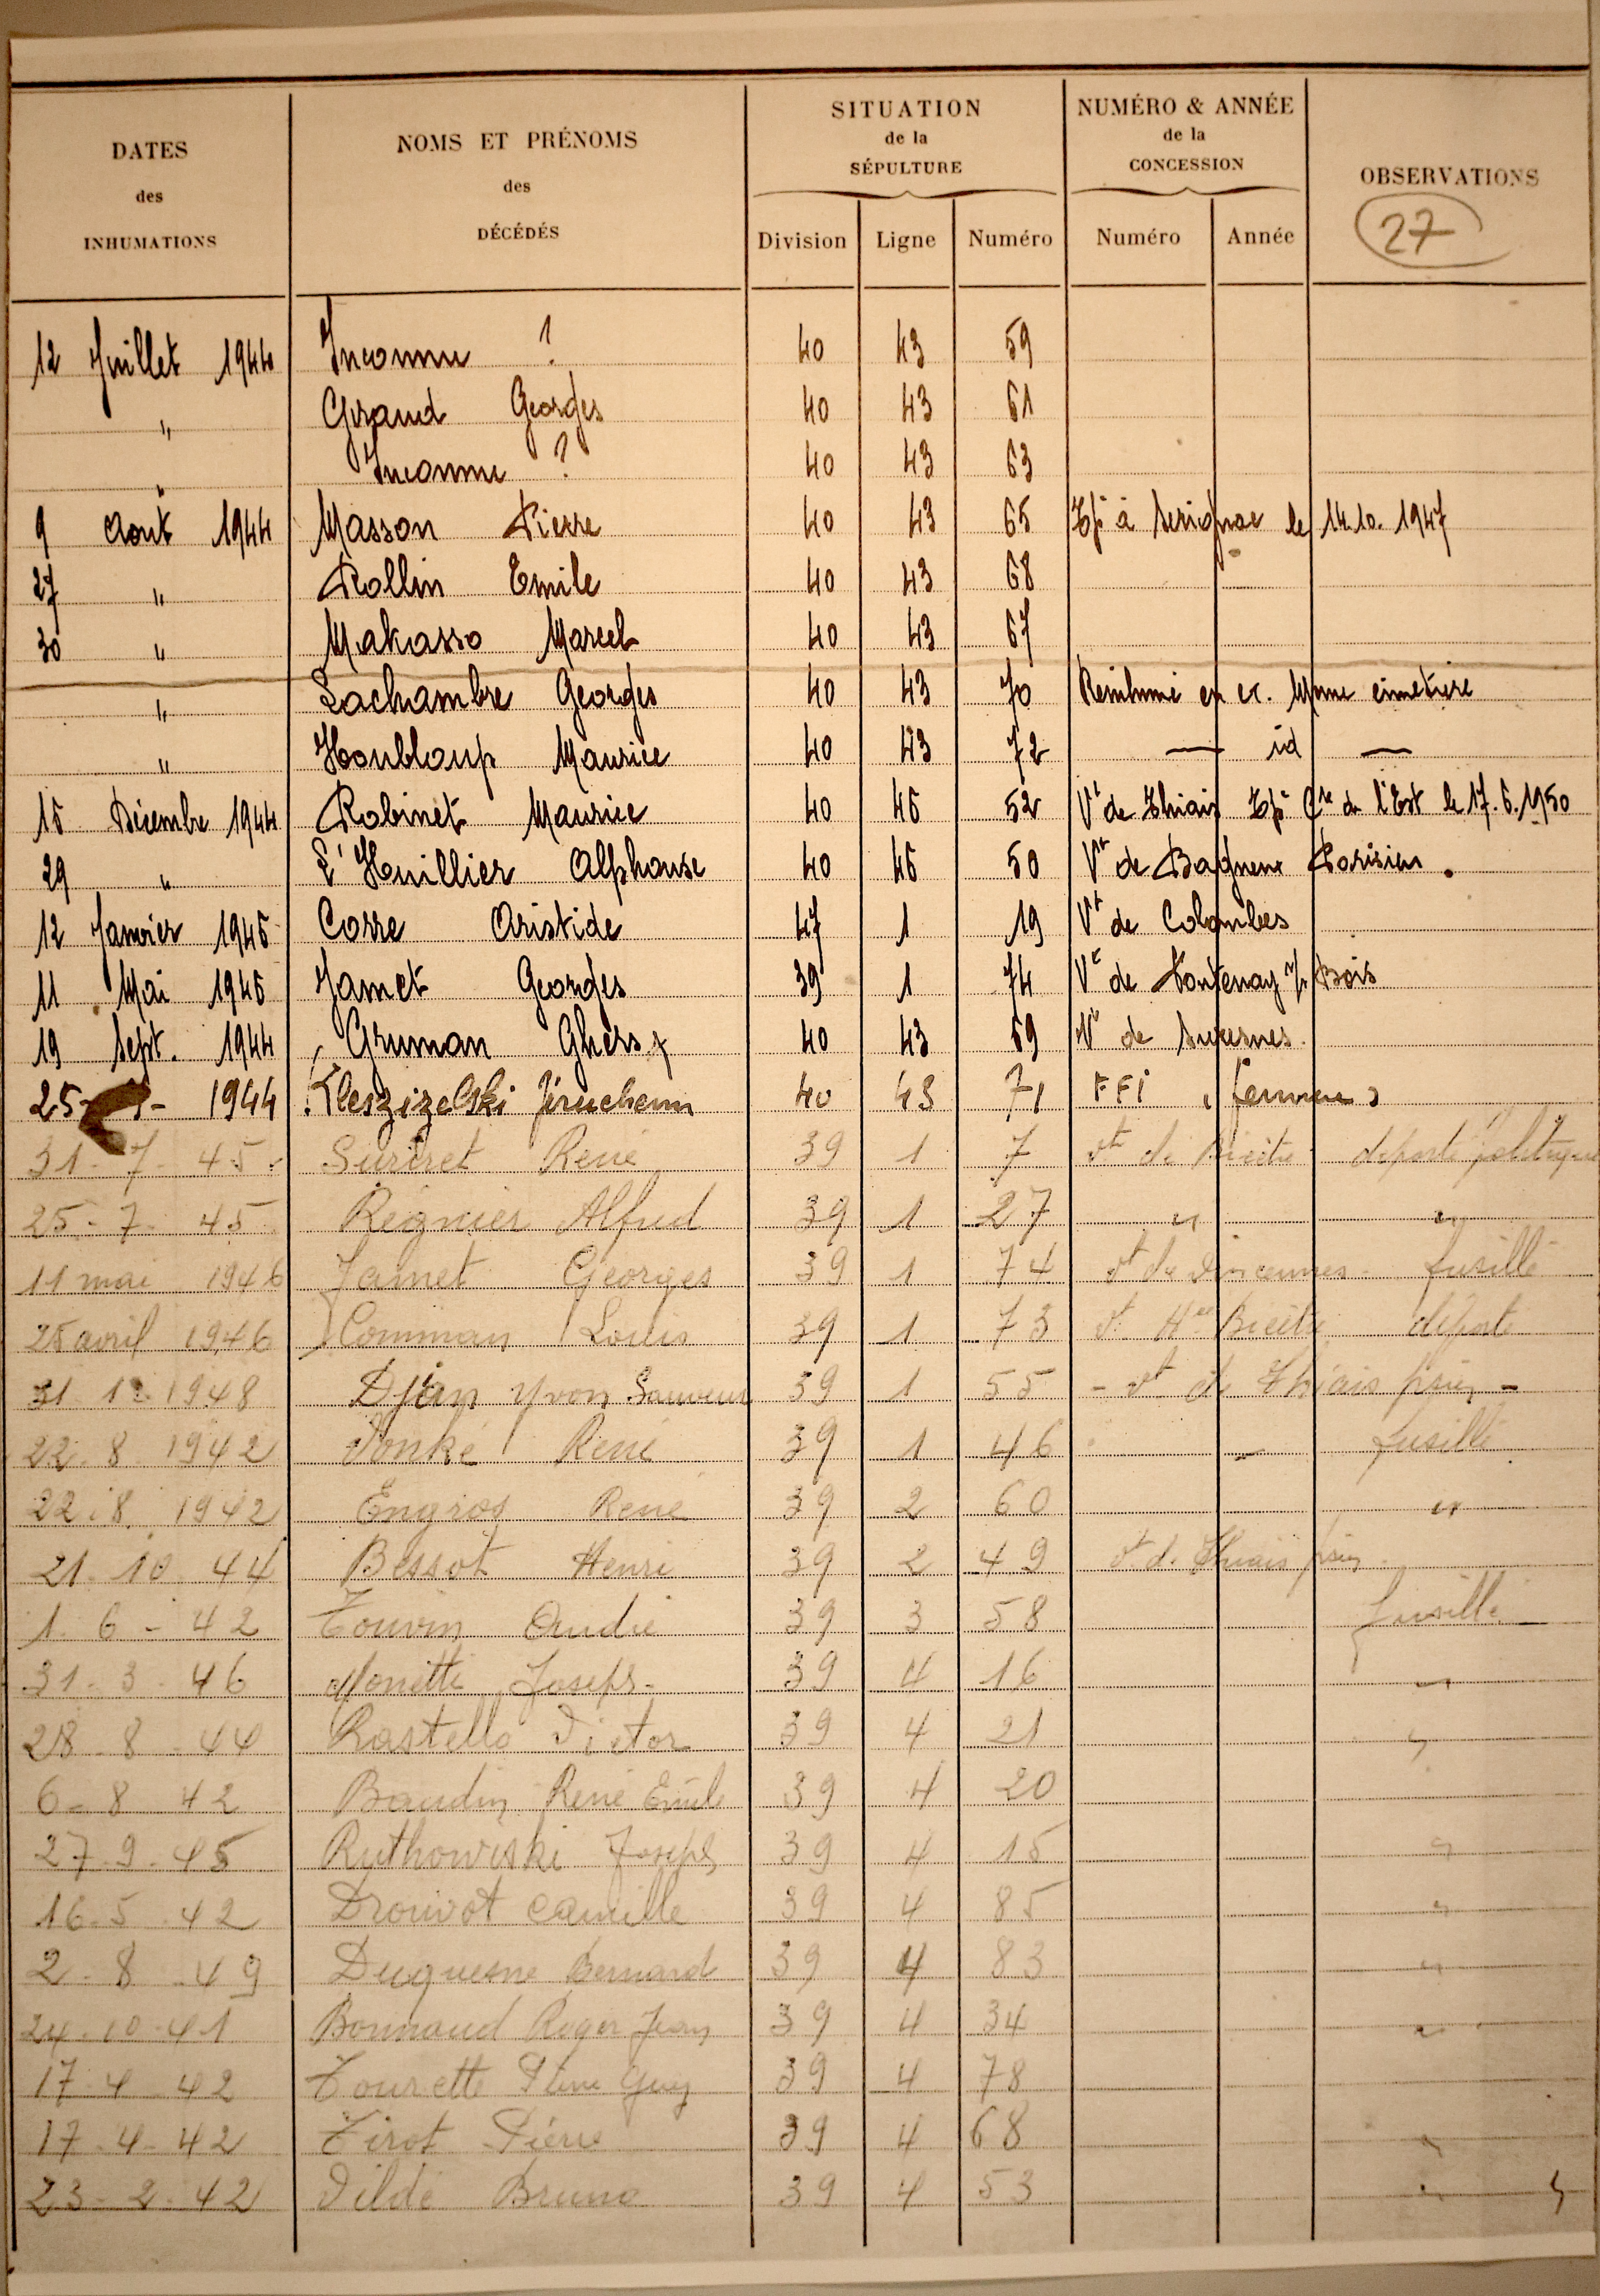 DATES des INHUMATIONS
NOMS ET PRÉNOMS des DÉCÉDÉS
SITUATION de la SÉPULTURE
NUMÉRO & ANNÉE de la CONCESSION
OBSERVATIONS
27
Division Ligne Numéro Numéro Année
12 Juillet 1944 Inconnu ? 40 43 59
" Giraud Georges 40 43 61
" Inconnu ? 40 43 63
9 Aout 1944 Masson Pierre 40 43 65 à le 14.10.1947
27 " Rollin Emile 40 43 68
30 " Makasso Marcel 40 43 67
" Lachambre Georges 40 43 70 Reinhumé en cc. Meme cimetiere
" Houbloup Maurice 40 43 72 — id —
15 Décembre 1944 Robinet Maurice 40 45 52 Vt de Thiais Cre de l'Est le 17.5.1950
29 " L'Huillier Alphonse 40 45 50 Vt de Bagneux Parisien.
12 Janvier 1945 Corre Aristide 47 1 19 Vt de Colombes
11 Mai 1945 Jamet Georges 39 1 74 Vt de Fontenay s/ Bois
19 Sept. 1944 Gruman 40 43 69 Vt de Suresnes.
25- - 1944 Kleszizelski Jiruchem 40 43 71 FFI (femme)
31-7-45 Suriret René 39 1 7 Vt de Bicêtre déporté politique
25-7-45 Régnier Alfred 39 1 27 " "
11 mai 1946 Jamet Georges 39 1 74 Vt de Vincennes fusillé
25 avril 1946 Comman Louis 39 1 73 Vt Bicêtre déporté
31 12 1948 Djian Yvon Sauveur 39 1 55 - Vt de Thiais psien -
22.8.1942 René 39 1 46 " fusillé
22.8.1942 Engros René 39 2 60 "
21.10.44 Bessot Henri 39 2 49 Vt de Thiais psien
1.6-42 Touvin André 39 3 58 fusillé
31-3-46 Monetti Joseph 39 4 16 "
28-8-44 Rastello Victor 39 4 21 "
6-8 42 Baudin René Emile 39 4 20
27-9-45 Ruthowiski Joseph 39 4 15 "
16-5-42 Drouvot Camille 39 4 85 "
2-8-49 Duquesne Bernard 39 4 83 "
24-10-41 Bonnaud Roger Jean 39 4 34 "
17-4-42 Tourette Pierre Guy 39 4 78
17-4-42 Tirot Pierre 39 4 68 "
23-2-42 Tildé Bruno 39 4 53 " "